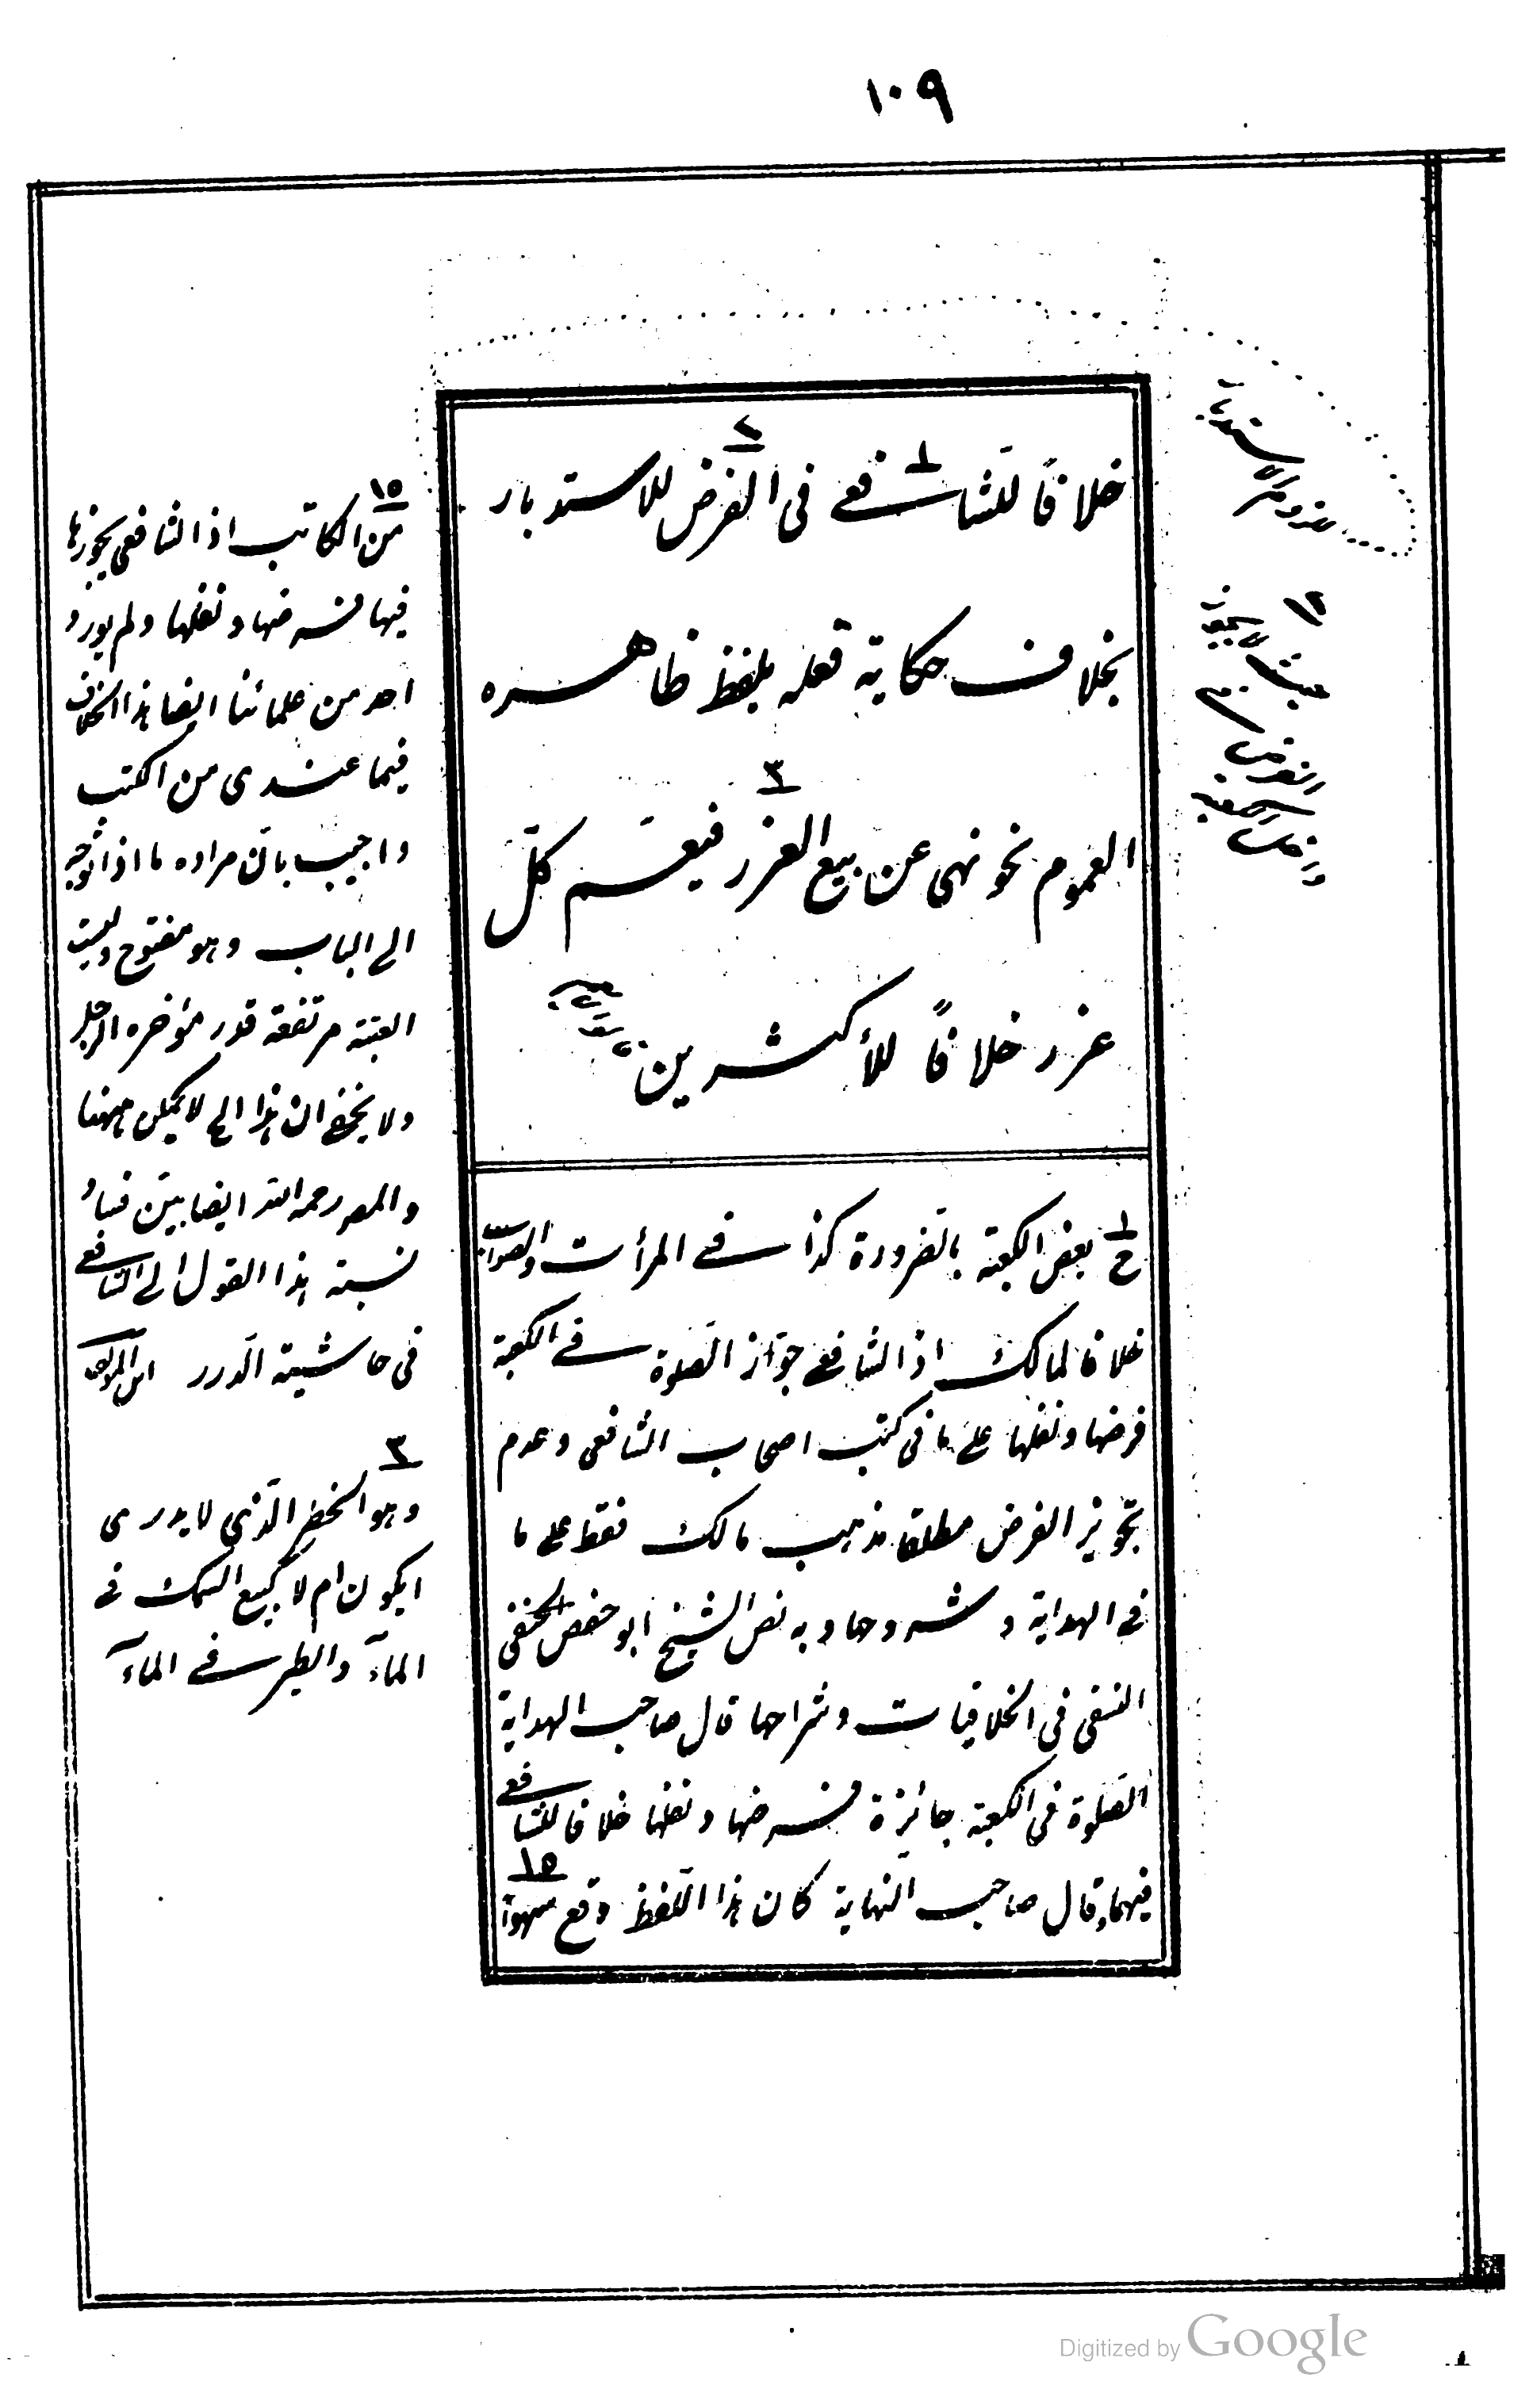 ١٠٩
خلافًا للشافعي في الفرض للاستدبار
بخلاف حكاية فعله بلفظ ظاهره
العموم نحو نهى عن بيع الغرر فيعمّ كلّ
غرر خلافًا للأكثرين
بعض الكعبة بالضرورة كذا في المرأت والصواب
خلافا لمالك اذ الشافعي جوّاز الصّلوة في الكعبة
فرضها ونفلها على ما في كتب اصحاب الشافعي وعدم
تجويز الفرض مطلقا مذهب مالك فقط على ما
في الهداية وشروحها وبه نص الشيخ ابو حفص الحنفي
النسفي في الخلافيات وشراحها قال صاحب الهداية
الصّلوة في الكعبة جائزة فرضها ونفلها خلافا للشافعي
فيهما وقال صاحب النهاية كان هذا اللّفظ وقع سهوًا
١٥
من الكاتب اذ الشافعي يجوزها
فيها فرضها ونفلها ولم يورد
احد من علمائنا ايضا هذا الخلاف
فيما عندى من الكتب
واجيب بانّ مراده ما اذا توجه
الى الباب وهو مفتوح وليست
العتبة مرتفعة قدر مؤخرة الرحل
ولا يخفى ان هذا الحمل لا يمكن ههنا
والمص رحمه الله ايضا بيّن فساد
نسبة هذا القول الى الشافعي
في حاشية الدرر
٣
وهو الخطر الّذي لا يدرى
ايكون ام لا كبيع السمك في
المآء والطير في المآء
لزوم الاستدبار
٢
حيث لا يجوز
الفرض
داخل الكعبة
Digitized by Google